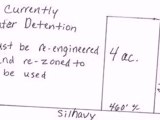 Currently
ter Detention
ust be re-engineered
nd re-zoned to
be used
4 ac.
460'
Silhavy